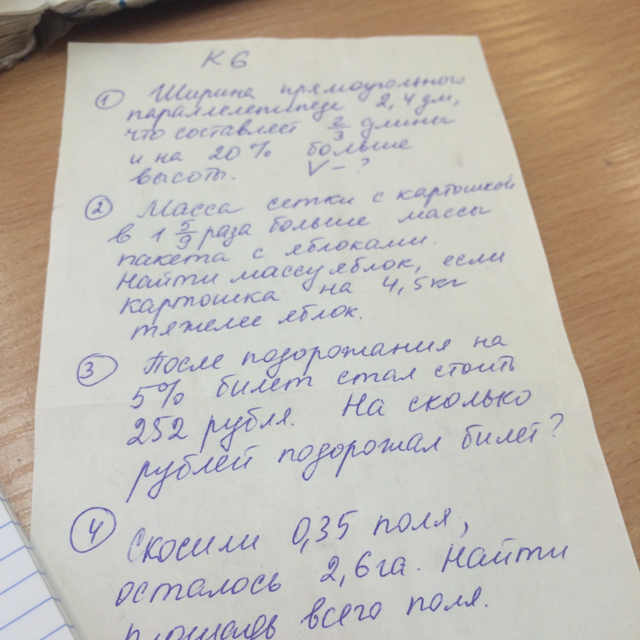 К 6
① Ширина прямоугольного
параллелепипеда 2,4 дм,
что составляет 2/3 длины
и на 20% больше
высот. V - ?
② Масса сетки с картошкой
в 1 5/9 раза больше массы
пакета с яблоками.
Найти массу яблок, если
картошка на 4,5 кг
тяжелее яблок.
③ После подорожания на
5% билет стал стоить
252 рубля. На сколько
рублей подорожал билет?
④ Скосили 0,35 поля,
осталось 2,6 га. Найти
площадь всего поля.